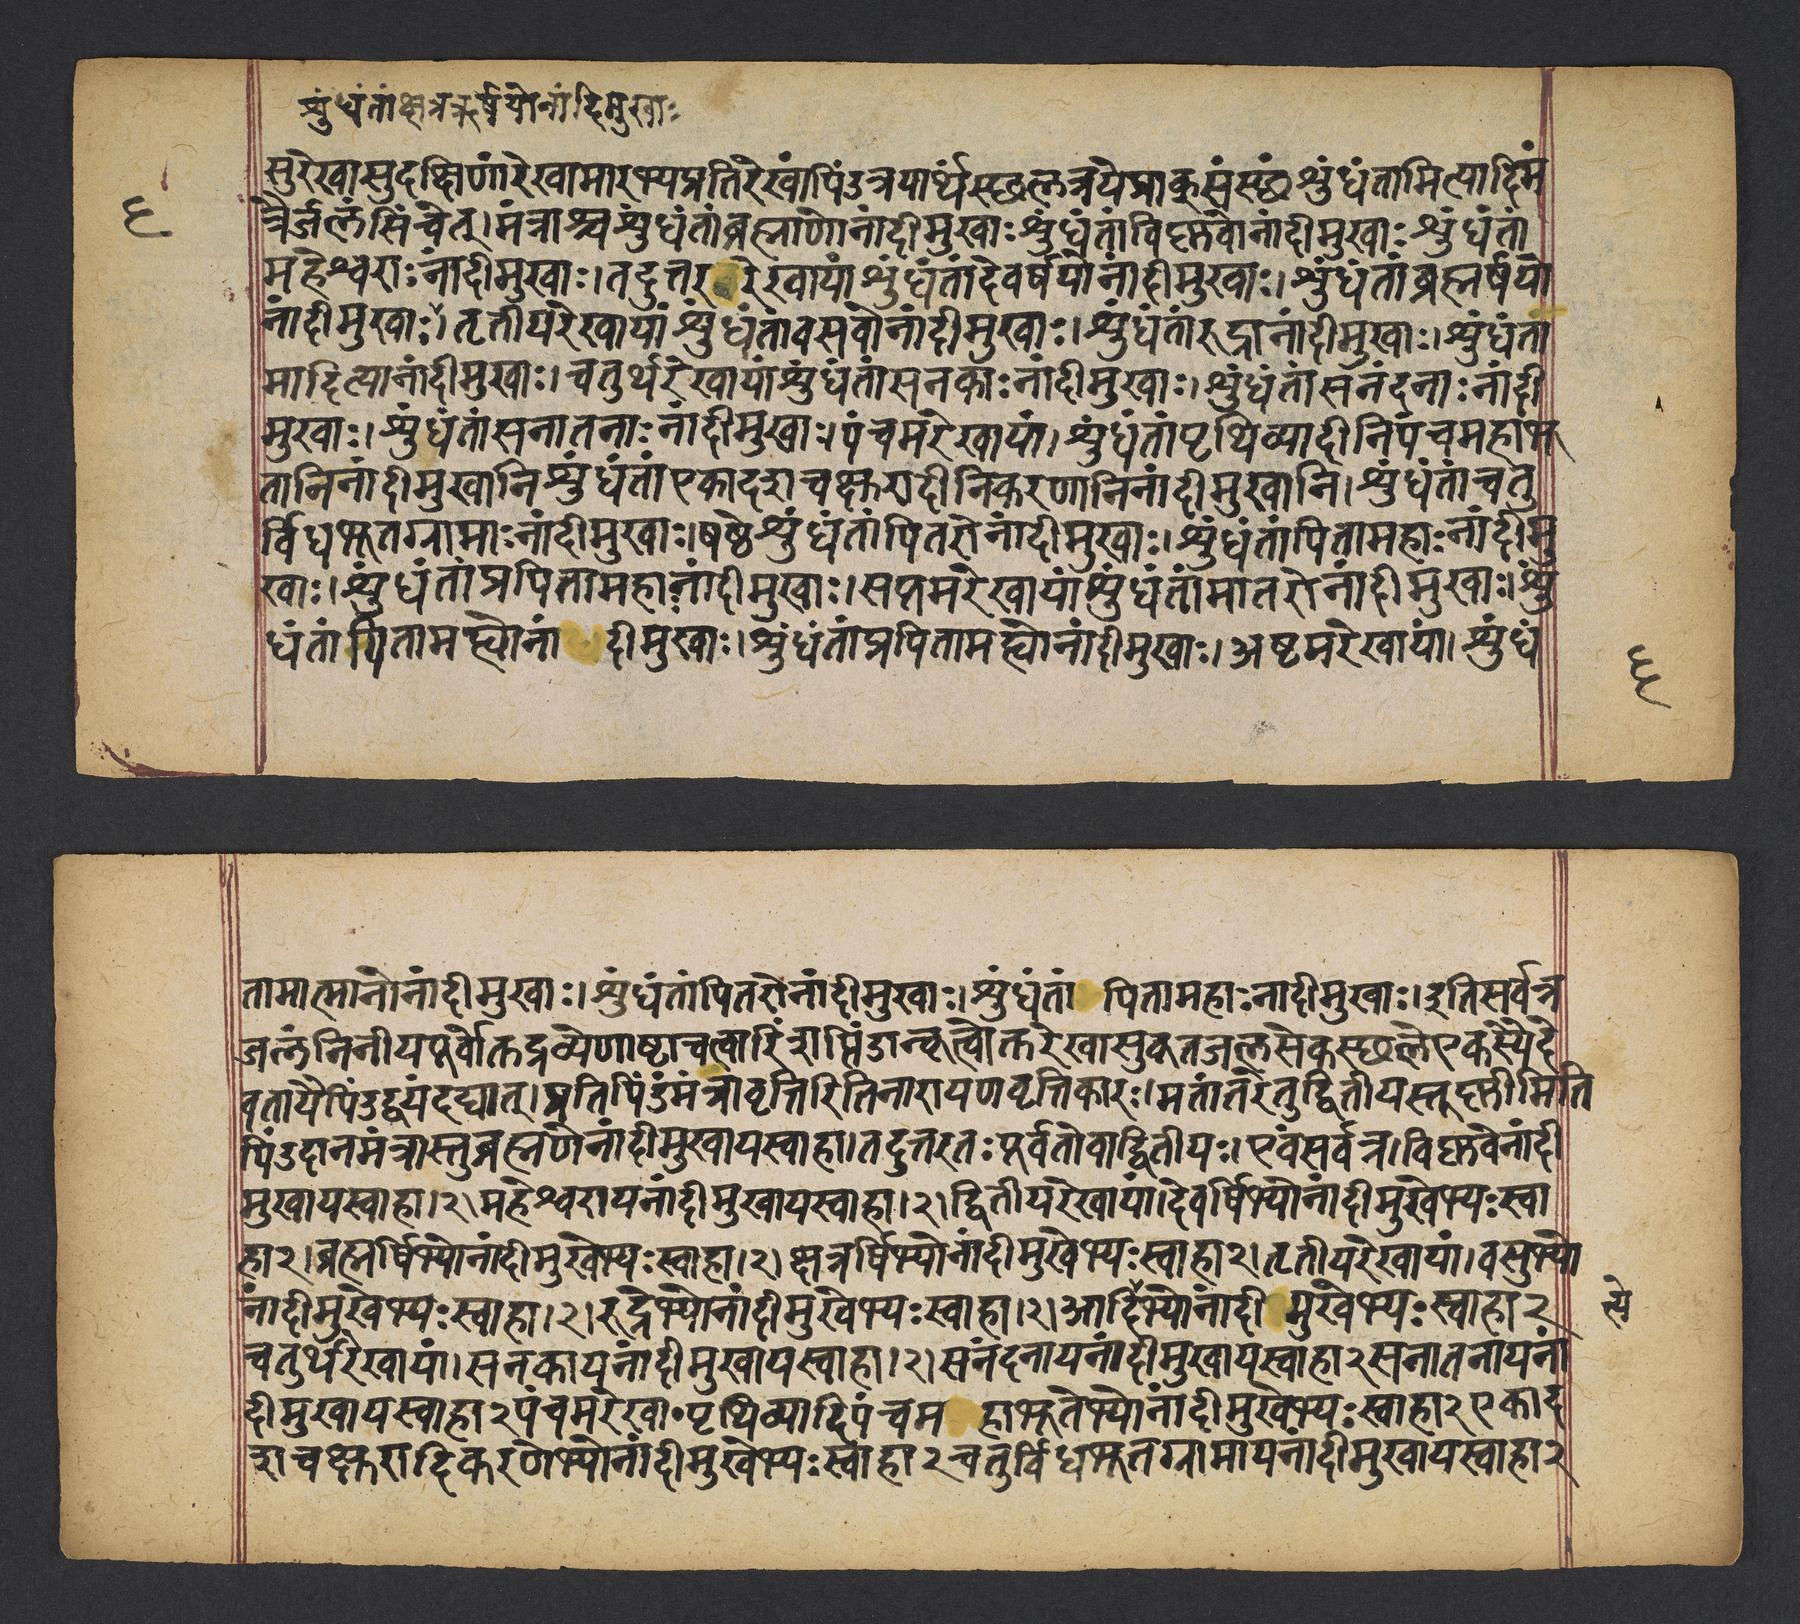 शुंधंतांक्षत्रऋर्षयोनांदिमुखाः
सुरेखासुदक्षिणांरेखामारभ्यप्रतिरेखांपिंडत्रयार्थंस्छलत्रयेप्राक्कुसंस्छं शुंधंतामित्यादिमं
त्रैर्जलंसिंचेत्।मंत्राश्च शुंधंतांब्रह्माणोनांदीमुखाःशुंधंतांविष्णवोनांदीमुखाःशुंधंतां
महेश्वराःनांदीमुखाः।तदुत्तररेखायांशुंधंतांदेवर्षयोनांदीमुखाः।शुंधंतांब्रह्मर्षयो
नांदीमुखाः।तृतीयरेखायांशुंधंतांवसवोनांदीमुखाः।शुंधंतांरुद्रानांदीमुखाः।शुंधंता
मादित्यानांदीमुखाः।चतुर्थरेखायांशुंधंतांसनकाःनांदीमुखाः।शुंधंतांसनंदनाःनांदी
मुखाः।शुंधंतांसनातनाःनांदीमुखाः।पंचमरेखायां।शुंधंतांपृथिव्यादीनिपंचमहाभू
तानिनांदीमुखानिशुंधंतांएकादशचक्षुरादीनिकरणानिनांदीमुखानि।शुंधंतांचतु
र्विधभूतग्रामाःनांदीमुखाः।षष्ठेशुंधंतांपितरोनांदीमुखाः।शुंधंतांपितामहाःनांदीमु
खाः।शुंधंतांप्रपितामहाःनांदीमुखाः।सप्तमरेखायांशुंधंतांमातरोनांदीमुखाः।शुं
धंतांपितामह्योनांदीमुखाः।शुंधंतांप्रपितामह्योनांदीमुखाः।अष्टमरेखायां।शुंधं
६
६
तामात्मानोनांदीमुखाः।शुंधंतांपितरोनांदीमुखाः।शुंधंतांपितामहाःनांदीमुखाः।इतिसर्वत्र
जलंनिनीयपूर्वोक्तद्रव्येणाष्टाचत्वारिंशत्पिंडान्कृत्वोक्तरेखासुकृतजलसेकस्छलेएकस्यैदे
वतायैपिंडद्वयंदद्यात्।प्रतिपिंडंमंत्रावृत्तिरितिनारायणवृत्तिकारः।मतांतरेतुद्वितीयस्तूष्णीमिति
पिंडदानमंत्रास्तुब्रह्मणेनांदीमुखायस्वाहा।तदुत्तरतःपूर्वतोवाद्वितीयः।एवंसर्वत्र।विष्णवेनांदी
मुखायस्वाहा।२।महेश्वरायनांदीमुखायस्वाहा।२।द्वितीयरेखायां।देवर्षिभ्योनांदीमुखेभ्यःस्वा
हा२।ब्रह्मर्षिभ्योनांदीमुखेभ्यःस्वाहा।२।क्षत्रर्षिभ्योनांदीमुखेभ्यःस्वाहा२।तृतीयरेखायां।वसुभ्यो
नांदीमुखेभ्यःस्वाहा।२।रुद्रेभ्योनांदीमुखेभ्यःस्वाहा।२।आदिभ्योनांदीमुखेभ्यःस्वाहा२
त्ये
चतुर्थरेखायां।सनकायनांदीमुखायस्वाहा।२।सनंदनायनांदीमुखायस्वाहा२सनातनायनां
दीमुखायस्वाहा२पंचमरेखा॰पृथिव्यादिपंचमहाभूतेभ्योनांदीमुखेभ्यःस्वाहा२एकाद
शचक्षुरादिकरणेभ्योनांदीमुखेभ्यःस्वाहा२चतुर्विधभूतग्रामायनांदीमुखायस्वाहा२